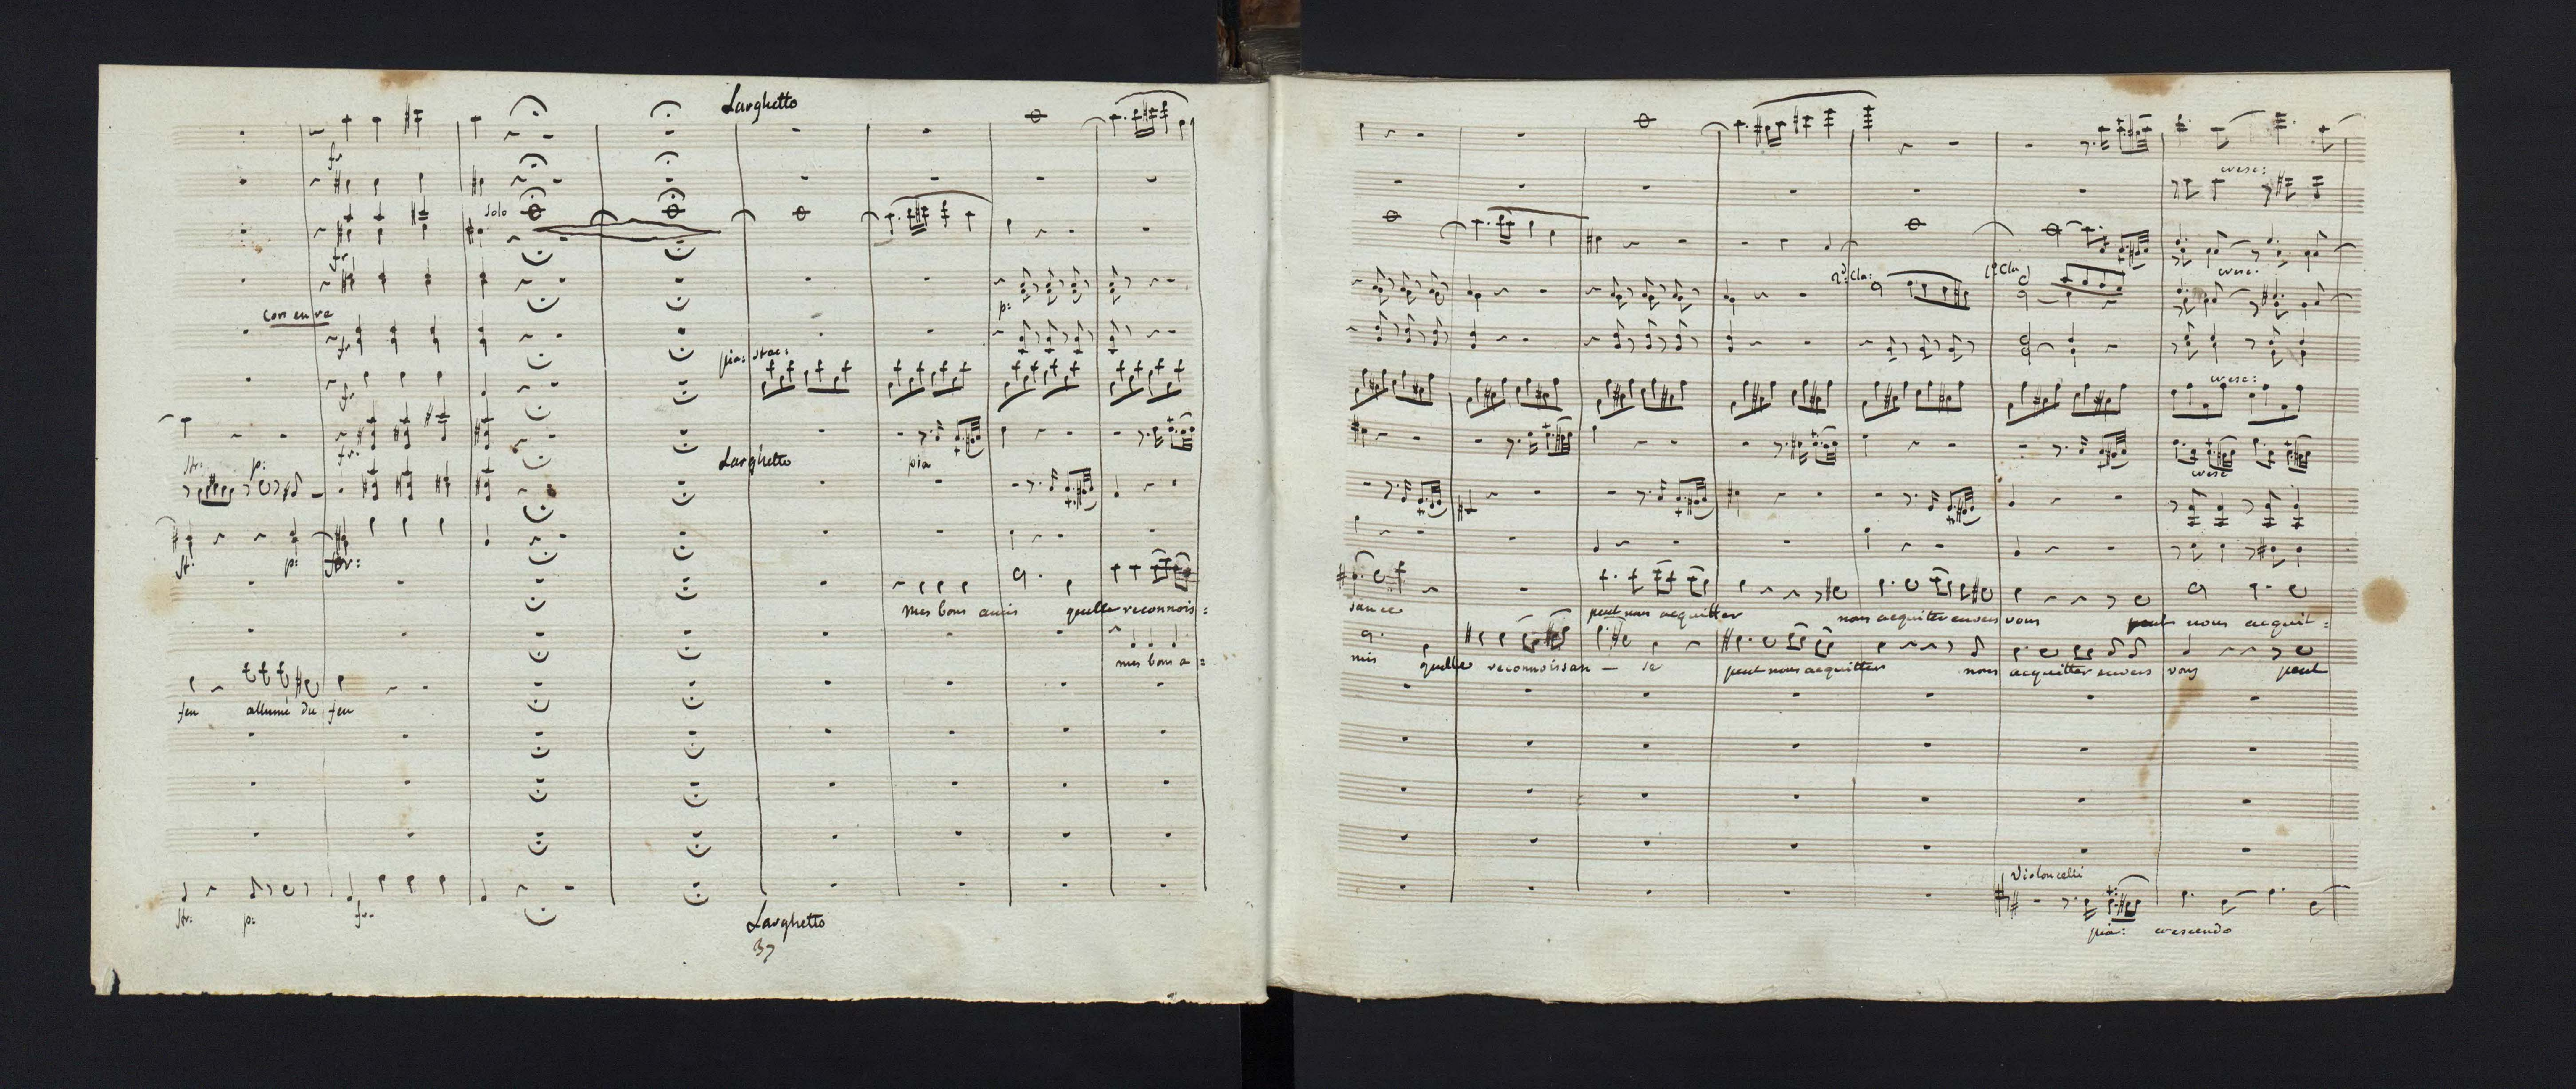 Larghetto
fr
solo
fr
p:
con en re
fr
pia: stac:
fr
fr:
Larghetto
pia
str: p:
st: p: for:
mes bons amis quelle reconnois:
mes bons a:
feu allumé du feu
str: p: fr.
Larghetto
37
cresc:
2d: Cla: 1º Cla
cresc.
cresc:
cresc
sance peut nous acquitter nous acquiter envers vous peut nous acquit:
mis quelle reconnoissan - se peut nous acquitter nous acquitter envers vous peut
Violoncelli
pia: crescendo